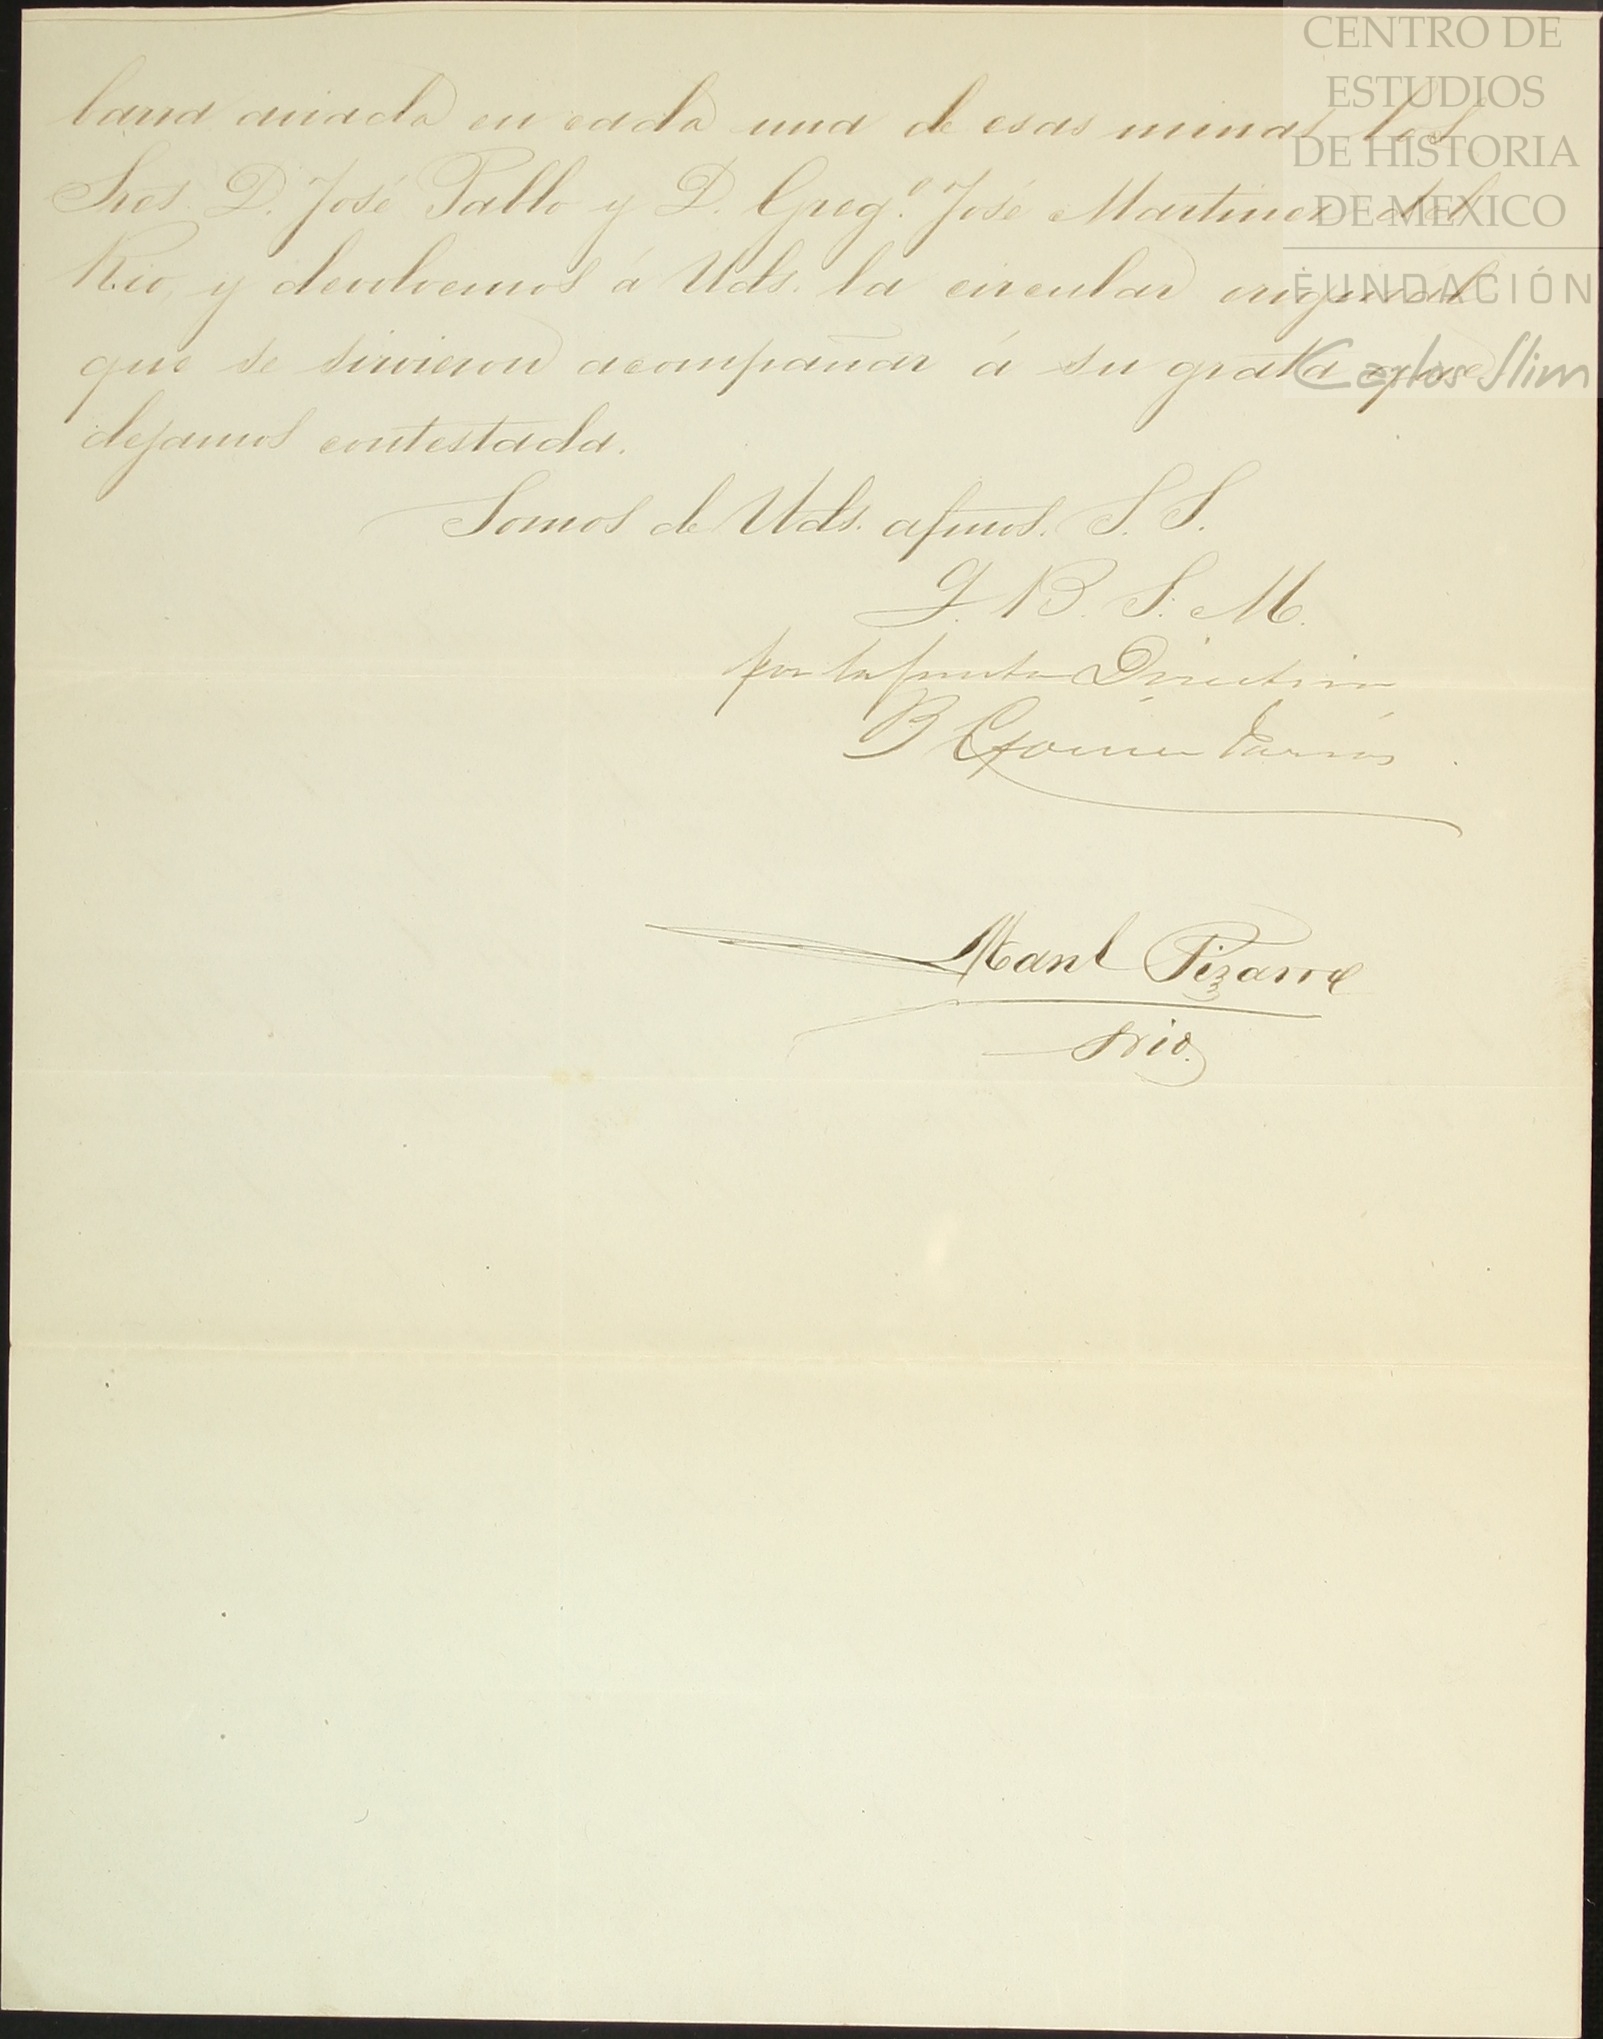 CENTRO DE
ESTUDIOS
DE HISTORIA
DE MEXICO
FUNDACIÓN
Carlos Slim
barra aviada en cada una de esas minas los
Sres. D. José Pablo y D. Greg.º José Martinez del
Rio, y devolvemos á Uds. la circular original
que se sirvieron acompañar á su grata que
dejamos contestada.
Somos de Uds. afmos. S. S.
Q. B. S. M.
por la junta Directiva
B Gomez Farias
Manl Pizarro
srio.